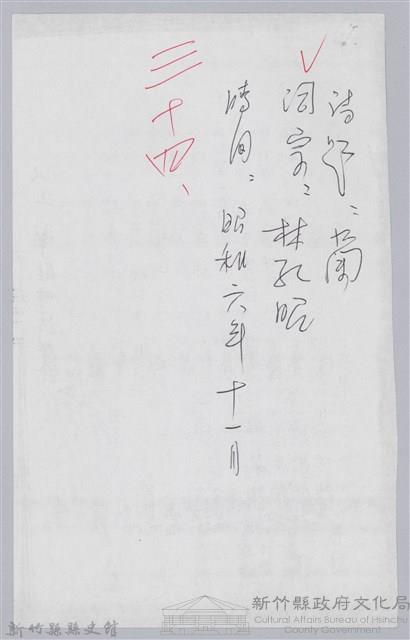 詩題：蘭
詞宗：林孔昭
時間：昭和六年十一月
三十四、
新竹縣政府文化局
Cultural Affairs Bureau of Hsinchu
County Government
新竹縣縣史館